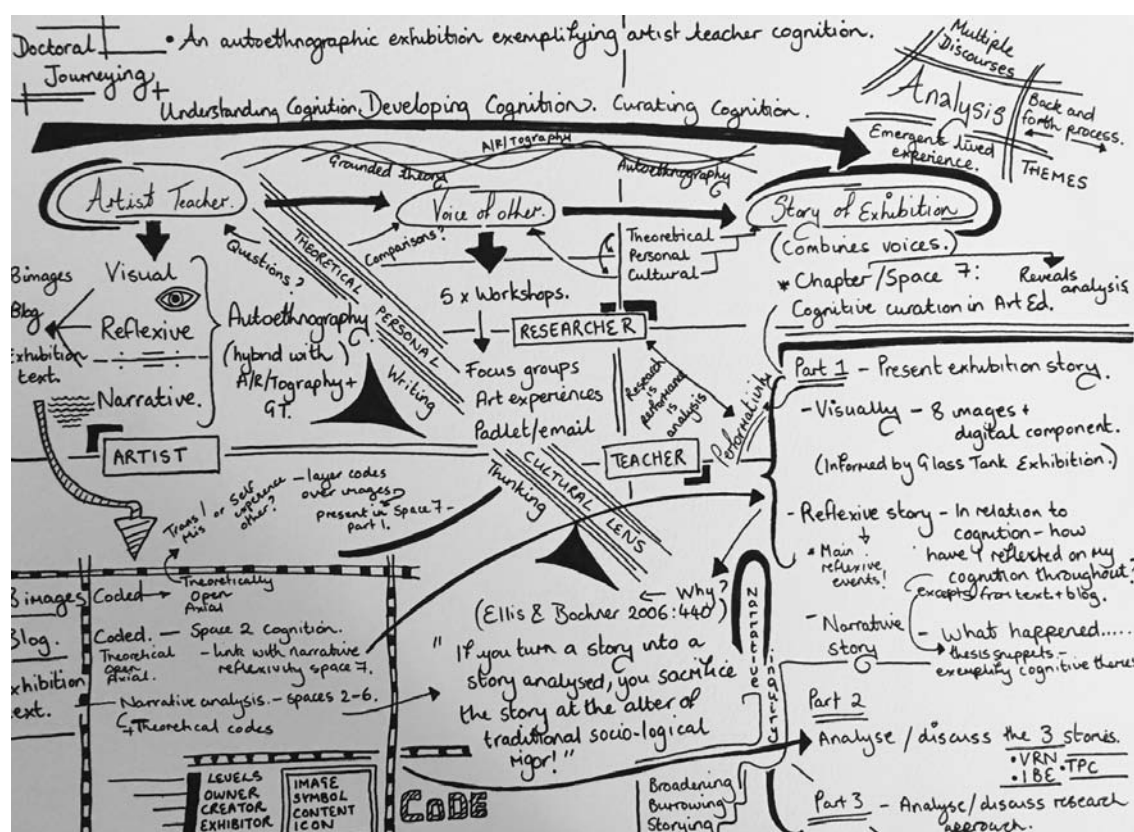 Doctoral
Journeying
• An autoethnographic exhibition exemplifying artist teacher cognition.
Understanding Cognition. Developing Cognition. Curating Cognition.
Multiple
Discourses
Analysis
Back and
forth process.
Emergent lived
experience.
THEMES
A/R/Tography
Grounded theory
Autoethnography
Artist Teacher.
Voice of other.
Story of Exhibition
(Combines voices.)
* Chapter/Space 7:
Reveals
analysis
Cognitive curation in Art Ed.
Questions?
Comparisons?
THEORETICAL PERSONAL
Writing
CULTURAL LENS
Thinking
Theoretical
Personal
Cultural
8 images
Blog
Exhibition
text.
Visual
Reflexive
Narrative.
Autoethnography
(hybrid with)
A/R/Tography +
GT.
ARTIST
5 x Workshops.
RESEARCHER
Focus groups
Art experiences
Padlet/email
Research
is
performance
is
analysis
Performativity
TEACHER
Part 1 - Present exhibition story.
- Visually - 8 images +
digital component.
(Informed by Glass Tank Exhibition.)
- Reflexive story - In relation to
cognition - how
have I reflected on my
cognition throughout?
excepts from text + blog.
* Main
reflexive
events!
- Narrative
story
- What happened.....
thesis snuppets -
exemplify cognitive themes
Part 2
Analyse / discuss the 3 stories.
• VRN
• TPC
• IBE
Part 3 - Analyse/discuss research
approach.
Trans / or Self
Mis experience
other?
- layer codes
over images
present in Space 7 -
part 1.
8 images
Coded → Theoretically
Open
Axial
Blog.
Coded. - Space 2 cognition.
Theoretical
Open
Axial.
- link with narrative
reflexivity space 7.
xhibition
text.
Narrative analysis. - spaces 2-6.
+ Theoretical codes
← Why?
(Ellis & Bochner 2006:440)
"If you turn a story into a
story analysed, you sacrifice
the story at the alter of
traditional socio-logical
rigor!"
Narrative
inquiry
LEVELS
OWNER
CREATOR
EXHIBITOR
IMAGE
SYMBOL
CONTENT
ICON
CODE
Broadening
Burrowing
Storying